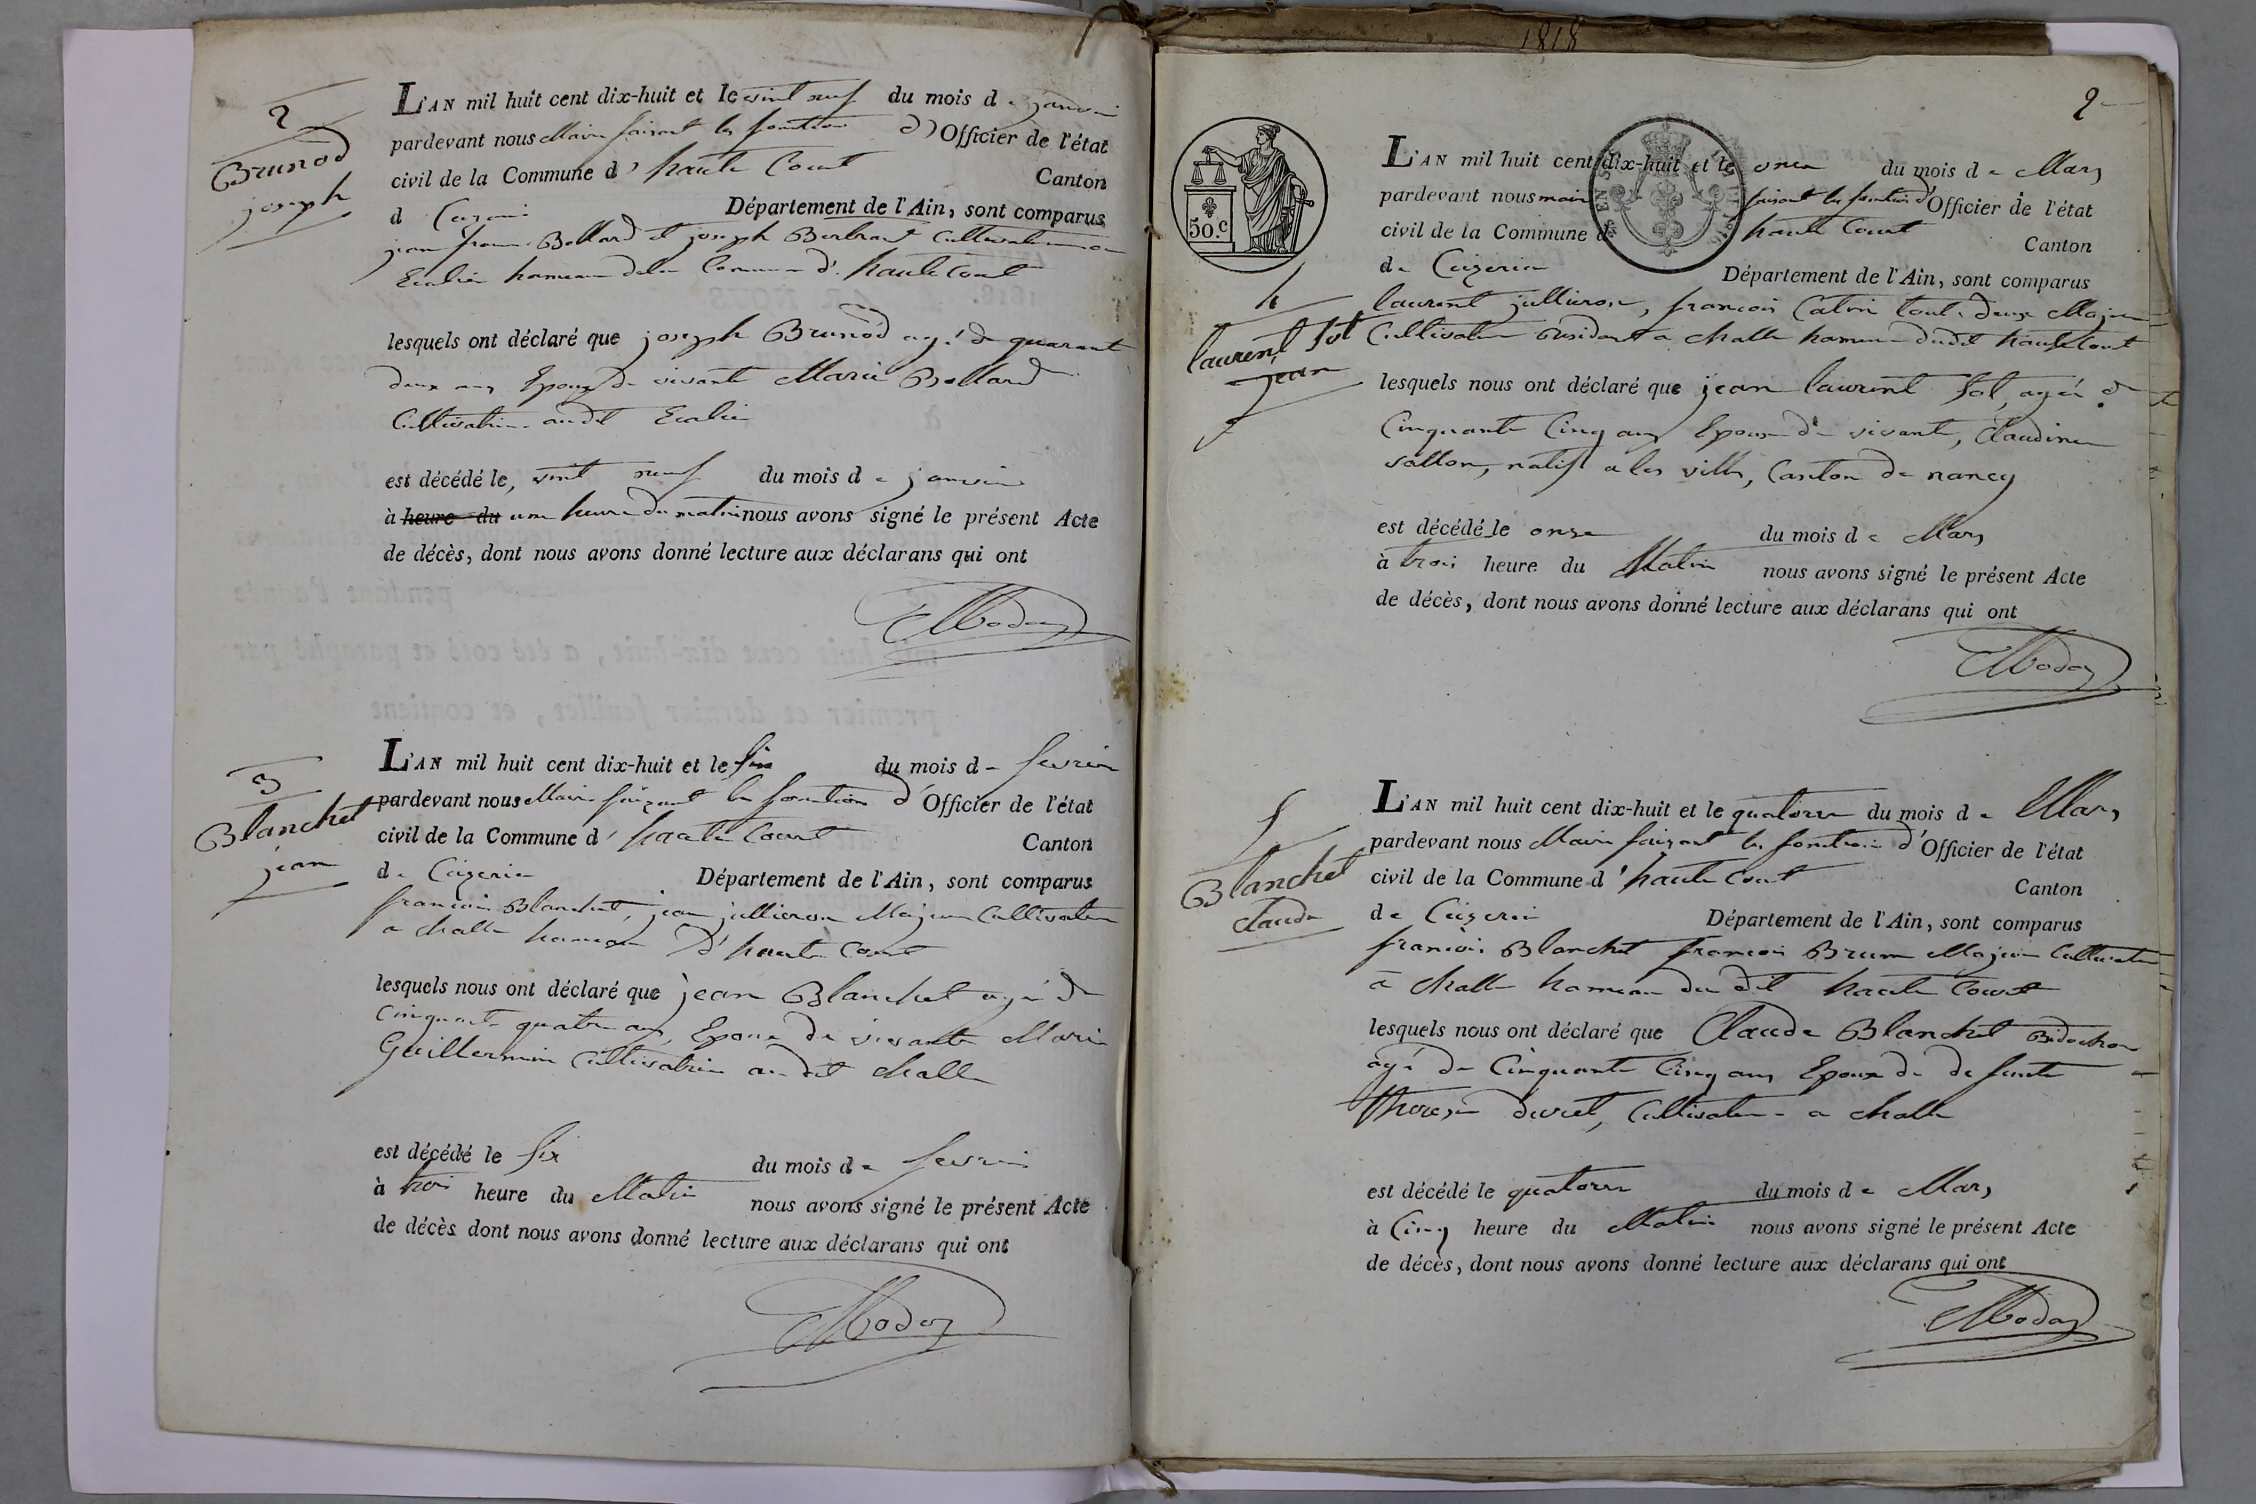 2
Brunod
joseph
L'AN mil huit cent dix-huit et le vint neuf du mois de janvier
pardevant nous Maire faisant les fonction d'Officier de l'état
civil de la Commune d'haute Court Canton
d Département de l'Ain, sont comparus
Bollard et joseph
hameau de la Commune d'hautecourt
lesquels ont déclaré que joseph Brunod agé de quarant
deux ans Epoux de vivante Marie Bollard
audit
est décédé le, vint neuf du mois de janvier
à heure du une heure du matin nous avons signé le présent Acte
de décès, dont nous avons donné lecture aux déclarans qui ont
3
Blanchet
jean
L'AN mil huit cent dix-huit et le six du mois de fevrier
pardevant nous Maire faizant les fonction d'Officier de l'état
civil de la Commune d'haute Court Canton
de Ceizeria Département de l'Ain, sont comparus
francois Blanchet, jean jullieron Majeur Cultivateur
a challe hameau d'haute Court
lesquels nous ont déclaré que jean Blanchet agé de
cinquante quatre ans, Epoux de vivante Marie
Guillermin Cultivatrice au dit challe
est décédé le six du mois de fevrier
à trois heure du Matin nous avons signé le présent Acte
de décès dont nous avons donné lecture aux déclarans qui ont
1818
2
50.c
4
laurent Sot
jean
L'AN mil huit cent dix-huit et le onze du mois de Mars
pardevant nous maire faisant les fonction d'Officier de l'état
civil de la Commune d haute Court Canton
de Ceizeria Département de l'Ain, sont comparus
laurent jullieron, francois Catin tout deux Majeur
Cultivateur residant a challe hameau dudit hautecourt
lesquels nous ont déclaré que jean laurent Sot, agé de
Cinquante Cinq ans Epoux de vivante, Claudine
vallon, natif a les ville, Canton de nancy
est décédé le onze du mois de Mars
à trois heure du Matin nous avons signé le présent Acte
de décès, dont nous avons donné lecture aux déclarans qui ont
5
Blanchet
claude
L'AN mil huit cent dix-huit et le quatorze du mois de Mars
pardevant nous Maire faizant les fonction d'Officier de l'état
civil de la Commune d'haute Court Canton
de Ceizeria Département de l'Ain, sont comparus
francois Blanchet francois Brun Majeur Cultivateur
a challe hameau du dit haute Court
lesquels nous ont déclaré que Claude Blanchet Bidochon
agé de Cinquante Cinq ans Epoux de defunte
divret, Cultivateur a challe
est décédé le quatorze du mois de Mars
à Cinq heure du Matin nous avons signé le présent Acte
de décès, dont nous avons donné lecture aux déclarans qui ont